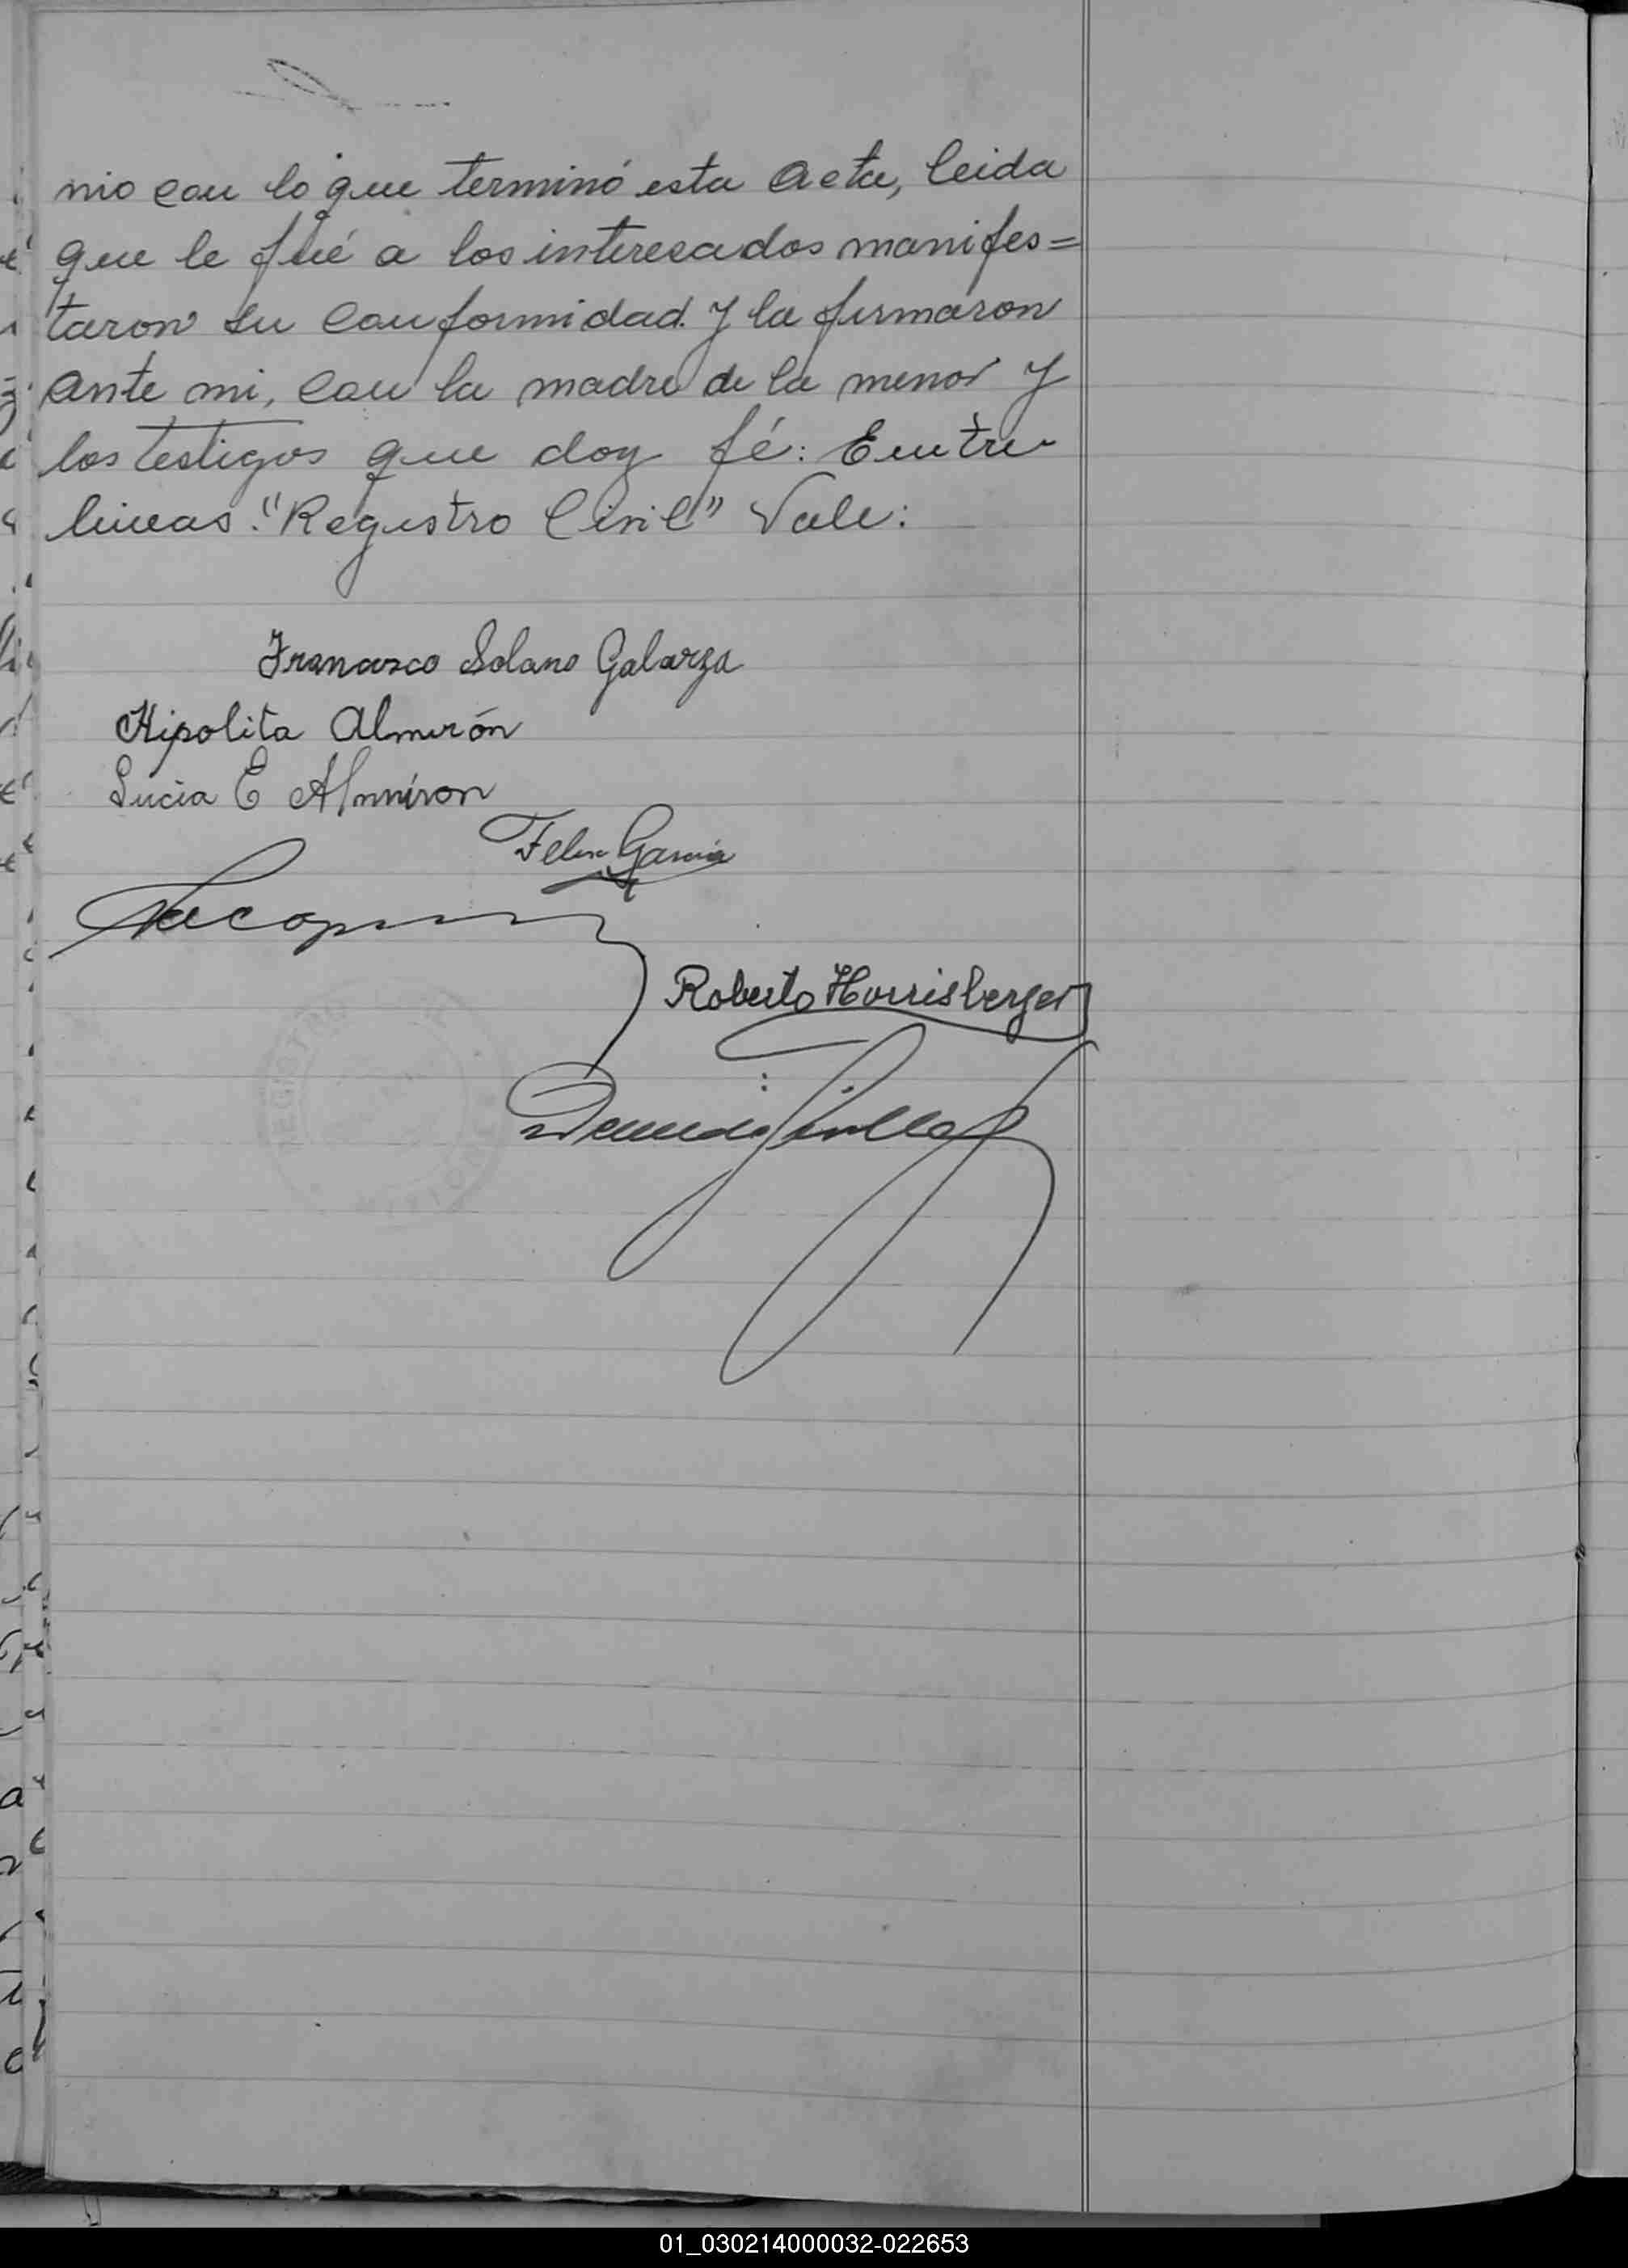 nio con lo que terminó esta acta, leida
que le fué a los interesados manifes=
taron su conformidad y la firmaron
ante mi, con la madre de la menor y
los testigos que doy fé: Entre
lineas: "Registro Civil" Vale:
Francisco Solano Galarza
Hipolita Almirón
Lucia E Almiron
Felix Garcia
Roberto Horrisberger
REGISTRO
01_030214000032-022653